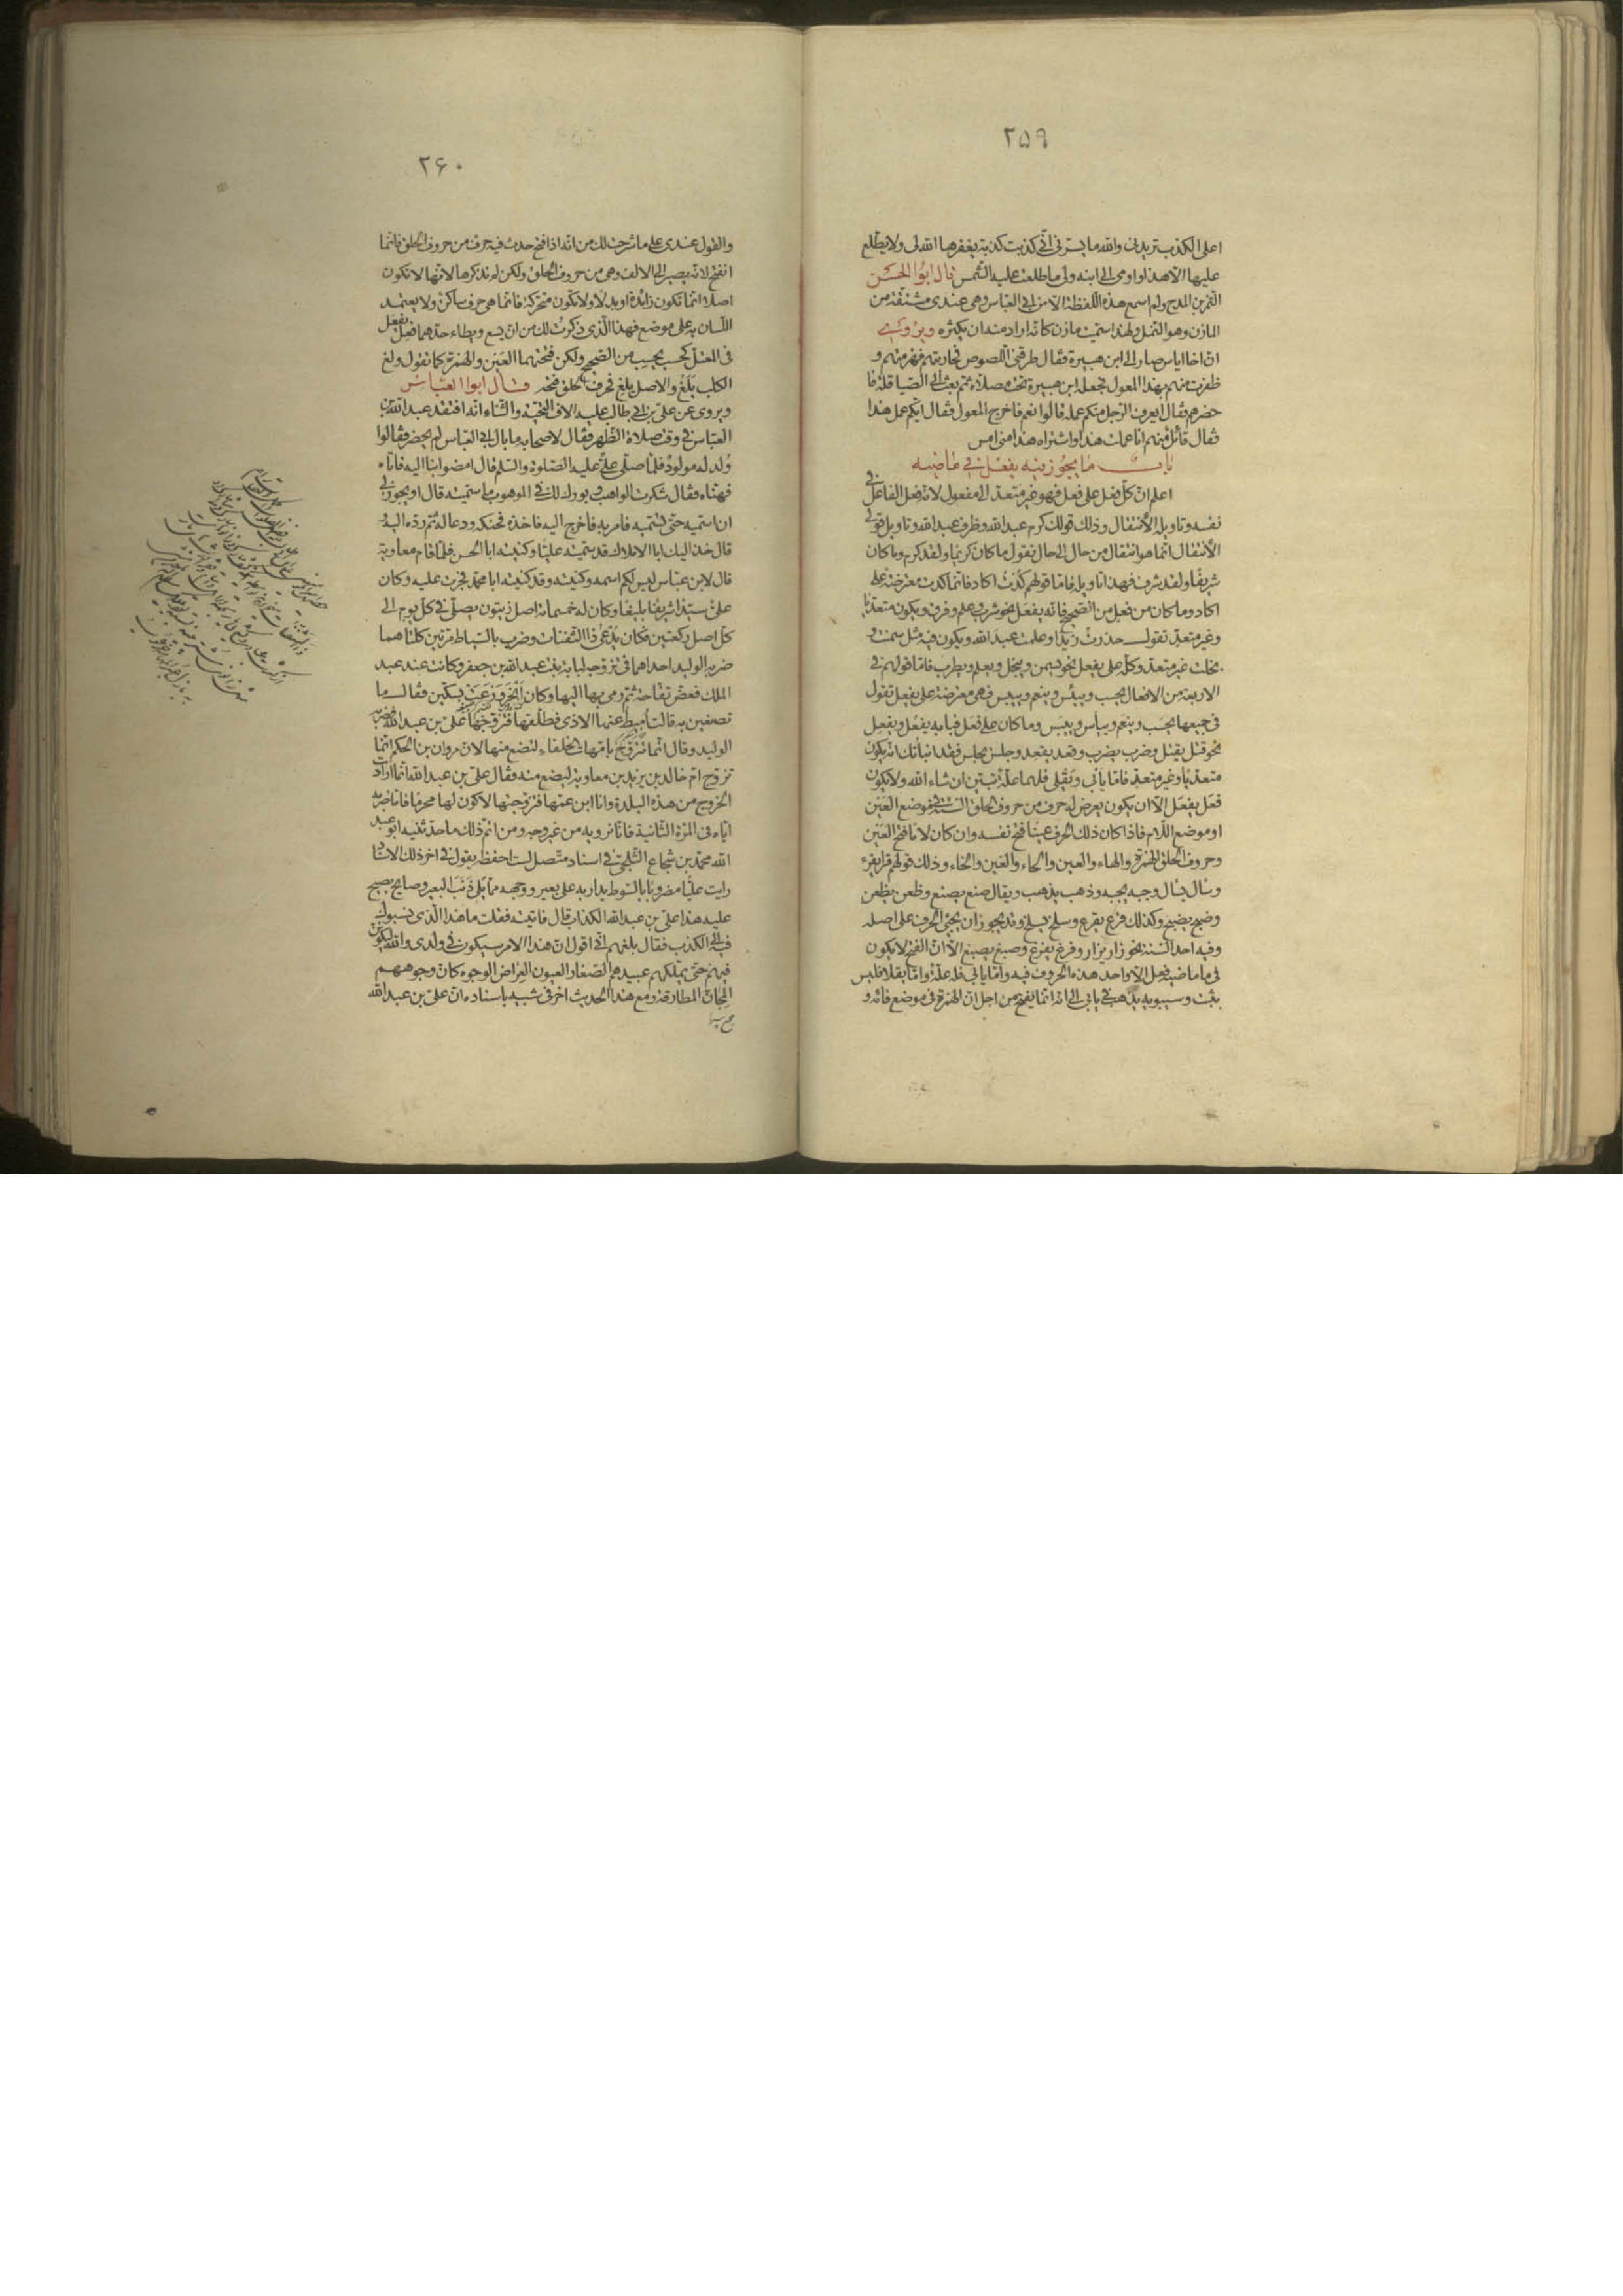 ٢۵٩
اعلى الكذب تريدنى والله ما يسرنى انّى كذبت كذبة يغفرها الله لى ولا يطّلع
عليها الا هذا واومى الى ابنه ولى ما طلعت عليه الشّمس قال ابوا الحسن
التمزين المدح ولم اسمع هذه اللّفظة الا من ابى العباس وهى عندى مشتقة من
المازن وهو النمل ولهذا سمّيت مازن كانه اراد منه ان يكثره ويروى
ان اخا اياس صار الى ابن هبيرة فقال طرقنى اللّصوص فحاربتهم فهزمتهم و
ظفرت منهم بهذا المعول فجعله ابن هبيرة تحت مصلاه ثم بعث الى الصّياقلة فا
حضرهم فقال ايعرف الرّجل منكم عمله قالوا نعم فاخرج المعول فقال ايّكم عمل هذا
فقال قائل منهم انا عملت هذا واشتراه هذا منى امس
باب ما يجوز فيه يفعل فى ماضيه
اعلم ان كلّ فعل على فعل فهو غير متعدّ الى مفعول لانه فعل الفاعل فى
نفسه وتاويله الأنتقال وذلك قولك كرم عبد الله وظرف عبد الله وتاويل قولى
الأنتقال انّما هو انتقال من حال الى حال تقول ما كان كريما ولقد كرم وما كان
شريفا ولقد شرف فهذا تاويله فامّا قولهم كدت اكاد فانّما كدت معرضة على
اكاد وما كان من فعل من الصّحيح فانّه يفعل نحو شرب وعلم وفرق ويكون متعدّيا
وغير متعدّ تقول حذرت زيدا وعلمت عبد الله ويكون فيه مثل سمنت و
بخلت غير متعدّ وكلّه على يفعل نحو يسمن ويبخل ويعلم ويطرب فامّا قولهم فى
الاربعة من الافعال يحسب ويبئس وينعم وييبس فهى معرضة على يفعل تقول
فى جميعها يحسب وينعم ويباس وييبس وما كان على فعل فبابه يفعل ويفعل
نحو قتل يقتل وضرب يضرب وقعد يقعد وجلس يجلس فقد انباتك انه يكون
متعدّيا وغير متعدّ فامّا يأبى ويقلى فلهما علّة تتبين ان شاء الله ولا يكون
فعل يفعل الا ان يكون يعرض له حرف من حروف الحلق الستّة فى موضع العين
او موضع اللّام فاذا كان ذلك الحرف عينا فتح نفسه وان كان لاما فتح العين
وحروف الحلق الهمزة والهاء والعين والحاء والغين والخاء وذلك قولهم قرا يقرء
وسأل يسأل وجبه يجبه وذهب يذهب ويقال صنع يصنع وظعن يظعن
وضبح يضبح وكذلك فرغ يفرغ وسلخ يسلخ وقد يجوز ان يجئ الحرف على اصله
وفيه احد الستّة نحو زار يزار وفرغ يفرغ وصبغ يصبغ الا ان الفتح لا يكون
فى ما ماضيه فعل الا واحد هذه الحروف فيه وامّا يابى فله علّة وامّا يقلا فليس
بثبت وسيبويه يذهب فى يابى الى انه انما يفتح من اجل ان الهمزة فى موضع فائه و
٢۶٠
والقول عندى على ما شرحت لك من انه اذا فتح حدث فيه حرف من حروف الحلق فانّما
انفتح لانه يصير الى الالف وهى من حروف الحلق ولكن لم نذكرها لانّها لا تكون
اصلا انّما تكون زائدة او بدلا ولا تكون متحركة فانّما هى حرف ساكن ولا يعتمد
اللّسان به على موضع فهذا الّذى ذكرت لك من ان يسع ويطاء حدّهما فعل يفعل
فى المعتل كحسب يحسب من الصّحيح ولكن فتحتهما العين والهمزة كما تقول ولغ
الكلب يلغ والاصل يلغ فحرف الحلق فتحه قال ابوا العبّاس
ويروى عن على بن ابى طالب عليه الاف التحيّة والثناء انه افتقد عبد الله بن
العباس فى وقت صلاة الظّهر فقال لاصحابه ما بال ابى العبّاس لم يحضر فقالوا
ولد له مولود فلمّا صلّى علىّ عليه الصّلوة والسّلم قال امضوا بنا اليه فاتاه
فهنّاه فقال شكرت الواهب وبورك لك فى الموهوب ما سمّيته قال او يجوز لى
ان اسمّيه حتى تسمّيه فامر به فاخرج اليه فاخذه فحنكه ودعا له ثم ردّه اليه و
قال خذ اليك ابا الاملاك قد سمّيته عليّا وكنيته ابا الحسن فلمّا قام معاوية
قال لابن عباس ليس لكم اسمه وكنيته وقد كنيته ابا محمّد فجرت عليه وكان
علىّ سيّدا شريفا بليغا وكان له خمسمائة اصل زيتون يصلّى فى كلّ يوم الى
كلّ اصل ركعتين فكان يدعى ذا الثّفنات وضرب بالسّياط مرتين كلتاهما
ضربه الوليد احداهما فى تزوجه لبابة بنت عبد الله بن جعفر وكانت عند عبد
الملك فعضّ تفاحة ثم رمى بها اليها وكان ابخر فدعت بسكّين فقال ما
تصنعين به قالت اميط عنها الاذى فطلّقها فتزوّجها على بن عبد الله فضربه
الوليد وقال انّما تتزوّج بامّهات الخلفاء لتضع منها لان مروان بن الحكم انما
تزوّج امّ خالد بن يزيد بن معاوية ليضع منه فقال على بن عبد الله انما ارادت
الخروج من هذه البلدة وانا ابن عمّها فتزوجتها لاكون لها محرما فامّا ضربه
ايّاه فى المرّة الثانية فانّا نرويه من غير وجه ومن اتمّ ذلك ما حدثنيه ابو عبد
الله محمّد بن شجاع الثلجى فى اسناد متّصل لست احفظه يقول فى اخر ذلك الاسناد
رايت عليّا مضروبا بالسّوط يدار به على بعير ووجهه ممّا يلى ذنب البعير وصايح يصيح
عليه هذا على بن عبد الله الكذاب قال فاتيته فقلت ما هذا الّذى نسبوك
فيه الى الكذب فقال بلغهم انّى اقول ان هذا الامر سيكون فى ولدى والله ليكونن
فيهم حتى يملكهم عبيدهم الصّغار العيون العراض الوجوه كانّ وجوههم
المجانّ المطارقة ومع هذا الحديث اخر فى شبيه باسناده ان على بن عبد الله